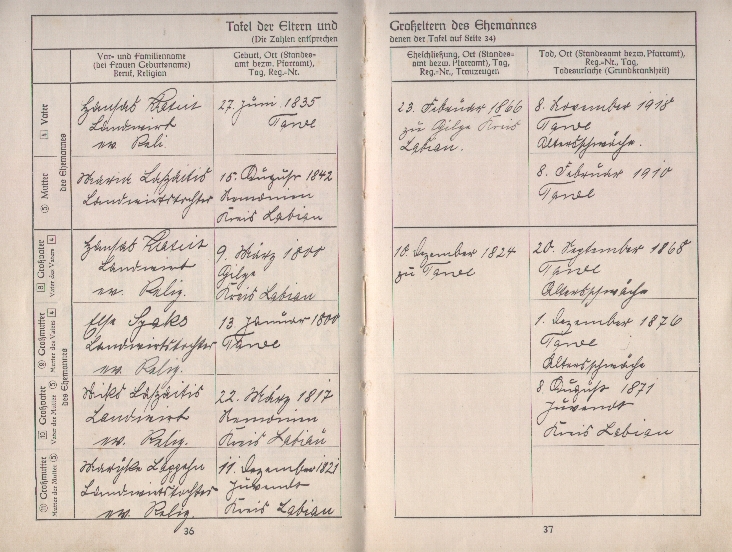 Tafel der Eltern und
(Die Zahlen entsprechen
Vor- und Familienname
(bei Frauen Geburtsname)
Beruf, Religion
Geburt, Ort (Standes-
amt bezw. Pfarramt),
Tag, Reg.-Nr.
4 Vater
des Ehemannes
Landwirt
ev. Reli.
27. Juni 1835
Tawe
5 Mutter
Landwirtstochter
15. August 1842
Nemonien
Kreis Labiau
8 Großvater
Vater des Vaters 4
Landwirt
ev. Relig.
9. März 1800
Gilge
Kreis Labiau
9 Großmutter
Mutter des Vaters 4
Else
Landwirtstochter
ev. Relig.
13. Januar 1800
Tawe
des Ehemannes
10 Großvater
Vater der Mutter 5
Landwirt
ev. Relig.
22. März 1817
Nemonien
Kreis Labiau
11 Großmutter
Mutter der Mutter 5
Landwirtstochter
ev. Relig.
11. Dezember 1821
Juwendt
Kreis Labiau
36
Großeltern des Ehemannes
denen der Tafel auf Seite 34)
Eheschließung, Ort (Standes-
amt bezw. Pfarramt), Tag,
Reg.-Nr., Trauzeugen
Tod, Ort (Standesamt bezw. Pfarramt),
Reg.-Nr., Tag,
Todesursache (Grundkrankheit)
23. Februar 1866
zu Gilge Kreis
Labiau.
8. November 1918
Tawe
Altersschwäche.
8. Februar 1910
Tawe
10. Dezember 1824
zu Tawe
20. September 1868
Tawe
Altersschwäche
1. Dezember 1876
Tawe
Altersschwäche
8. August 1871
Juwendt
Kreis Labiau
37